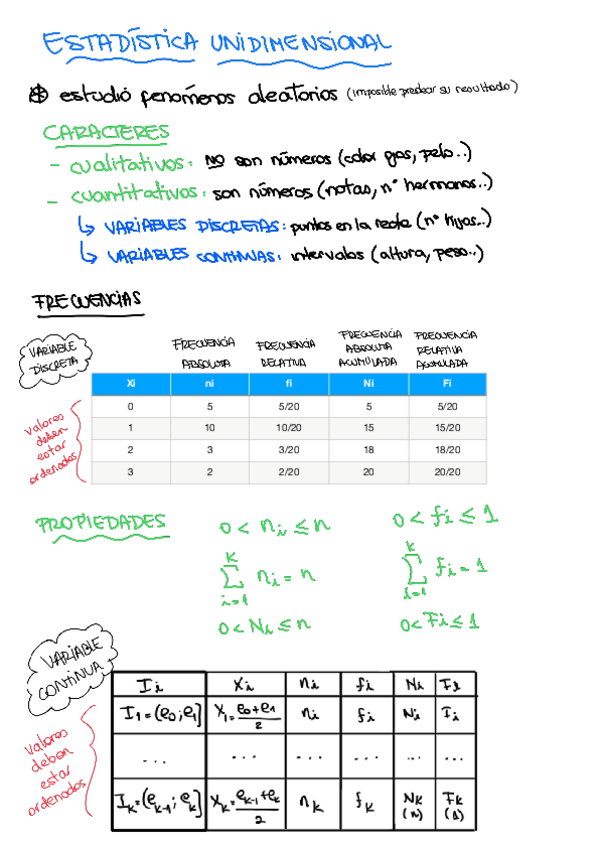 ESTADÍSTICA UNIDIMENSIONAL
estudió fenómenos aleatorios (imposible predecir su resultado)
CARACTERES
- cualitativos: NO son números (color ojos, pelo..)
- cuantitativos: son números (notas, nº hermanos..)
↳ VARIABLES DISCRETAS: puntos en la recta (nº hijos..)
↳ VARIABLES CONTINUAS: intervalos (altura, peso..)
FRECUENCIAS
VARIABLE DISCRETA
FRECUENCIA ABSOLUTA
FRECUENCIA RELATIVA
FRECUENCIA ABSOLUTA ACUMULADA
FRECUENCIA RELATIVA ACUMULADA
Xi ni fi Ni Fi
0 5 5/20 5 5/20
1 10 10/20 15 15/20
2 3 3/20 18 18/20
3 2 2/20 20 20/20
valores deben estar ordenados
PROPIEDADES
0 < ni ≤ n
0 < fi ≤ 1
k ∑ i=1 ni = n
k ∑ i=1 fi = 1
0 < Ni ≤ n
0 < Fi ≤ 1
VARIABLE CONTINUA
valores deben estar ordenados
Ii Xi ni fi Ni Fi
I1=(e0;e1] X1=e0+e1/2 ni fi Ni Fi
... ... ... ... ... ...
Ik=(ek-1;ek] Xk=ek-1+ek/2 nk fk Nk (n) Fk (1)